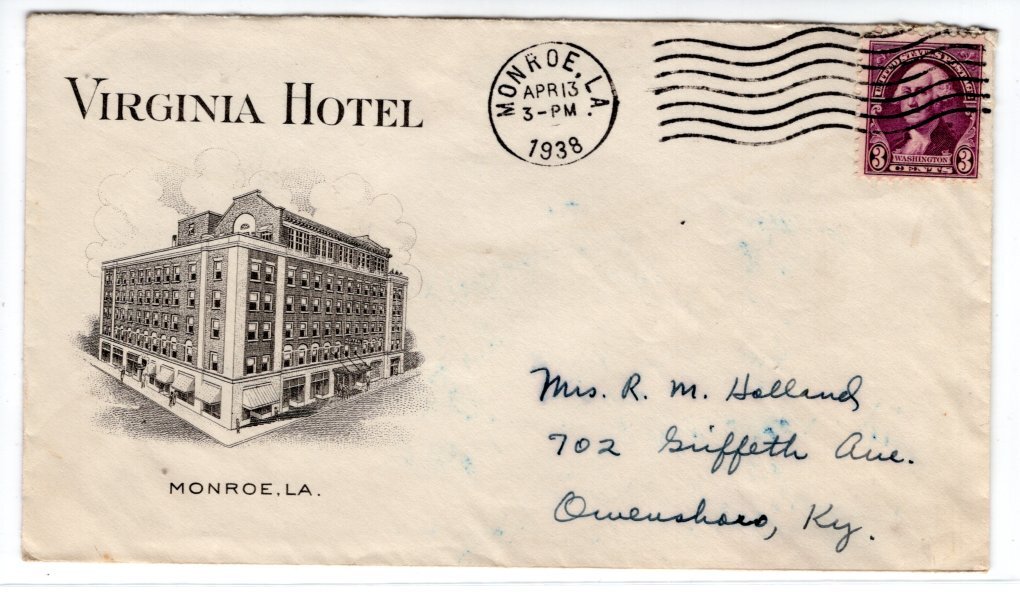 VIRGINIA HOTEL
MONROE, LA.
APR 13
3-PM
1938
3 WASHINGTON 3
MONROE, LA.
Mrs. R. M. Holland
702 Griffeth Ave.
Owensboro, Ky.